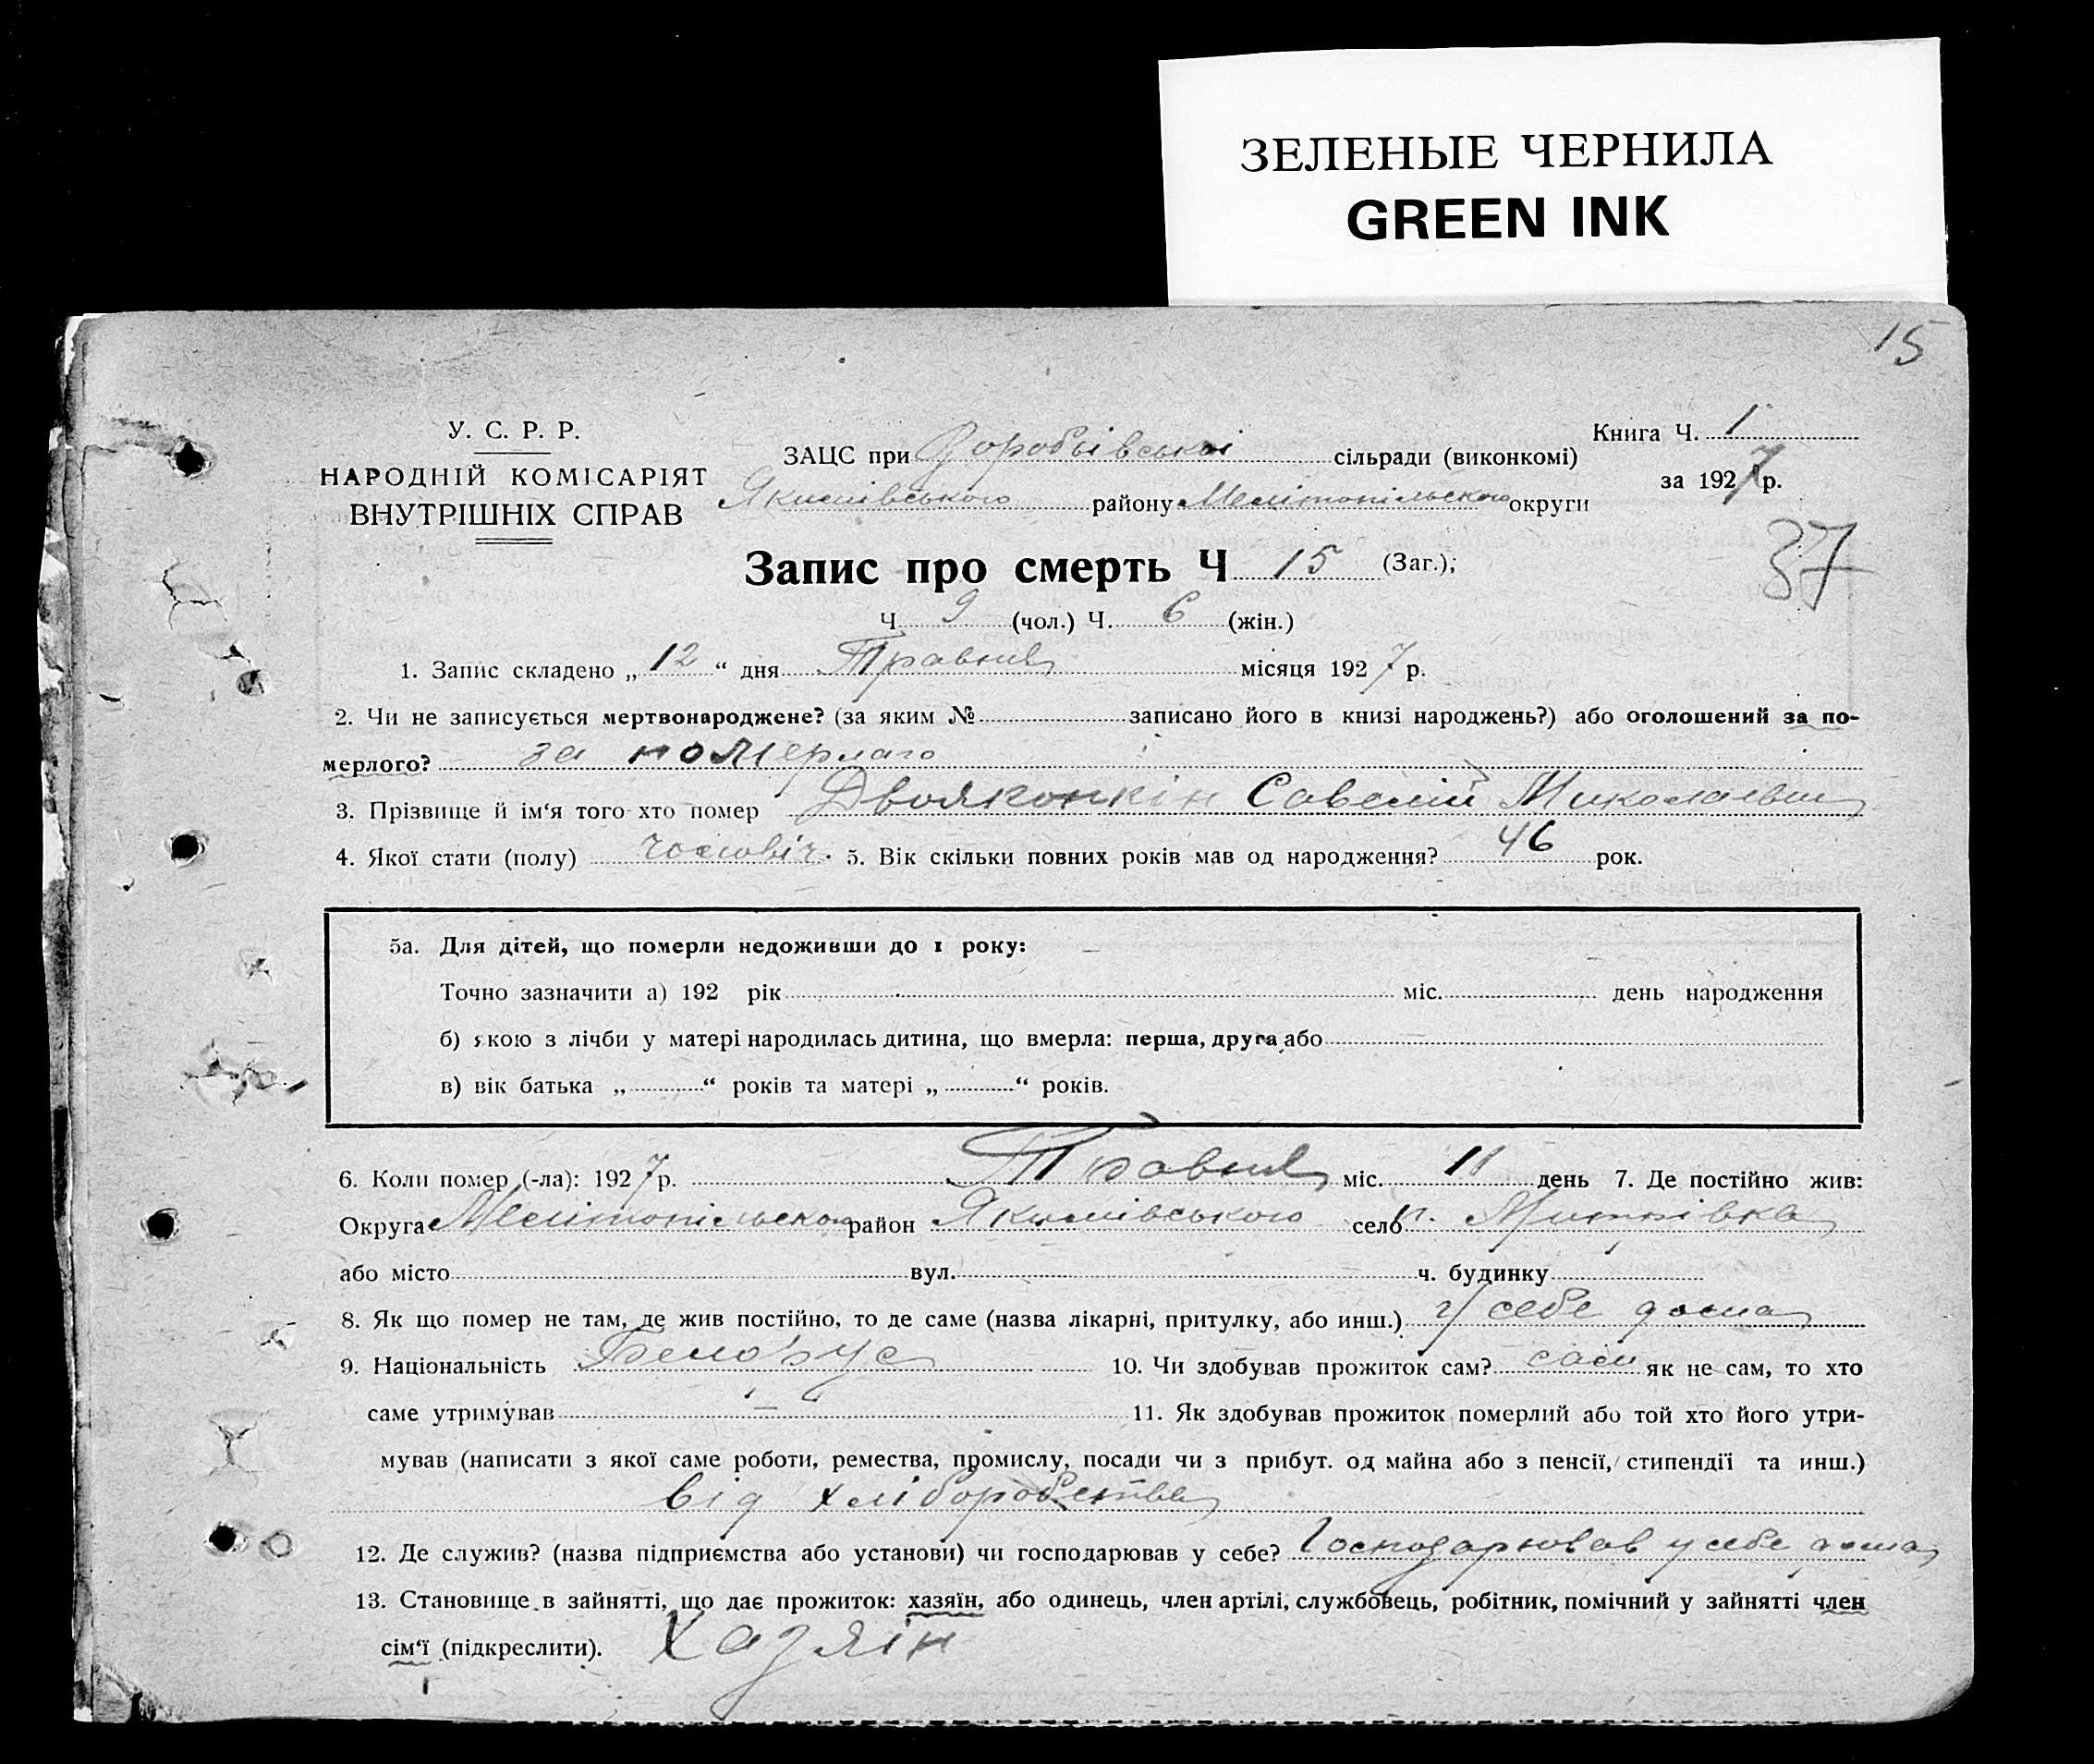 ЗЕЛЕНЫЕ ЧЕРНИЛА
GREEN INK
15
У. С. Р. Р.
НАРОДНІЙ КОМІСАРІЯТ
ВНУТРІШНІХ СПРАВ
ЗАЦС при Воробьівської сільради (виконкомі)
Якимівського району Мелітопільского округи
Книга Ч. 1
за 1927 р.
37
Запис про смерть Ч 15 (Заг.);
Ч 9 (чол.) Ч. 6 (жін.)
1. Запис складено „ 12 “ дня Травня місяця 1927 р.
2. Чи не записується мертвонароджене? (за яким № записано його в книзі народжень?) або оголошений за по-
мерлого? за померлаго
3. Прізвище й ім‘я того хто помер Двояконкін Савелій Миколаевич
4. Якої стати (полу) чоловіч. 5. Вік скільки повних років мав од народження? 46 рок.
5а. Для дітей, що померли недоживши до 1 року: —
Точно зазначити а) 192 рік міс. день народження
б) якою з лічби у матері народилась дитина, що вмерла: перша, друга або
в) вік батька „ “ років та матері „ “ років.
6. Коли помер (-ла): 1927 р. Травня міс. 11 день 7. Де постійно жив:
Округа Мелітопільского район Якимівського село п. Митрівка
або місто вул. ч. будинку
8. Як що помер не там, де жив постійно, то де саме (назва лікарні, притулку, або инш.) У себе дома
9. Національність Белорус 10. Чи здобував прожиток сам? сам як не сам, то хто
саме утримував — 11. Як здобував прожиток померлий або той хто його утри-
мував (написати з якої саме роботи, ремества, промислу, посади чи з прибут. од майна або з пенсії, стипендії та инш.)
від хліборобства
12. Де служив? (назва підприємства або установи) чи господарював у себе? Господарював у себе дома
13. Становище в зайнятті, що дає прожиток: хазяїн, або одинець, член артілі, службовець, робітник, помічний у зайнятті член
сім‘ї (підкреслити). Хазяін